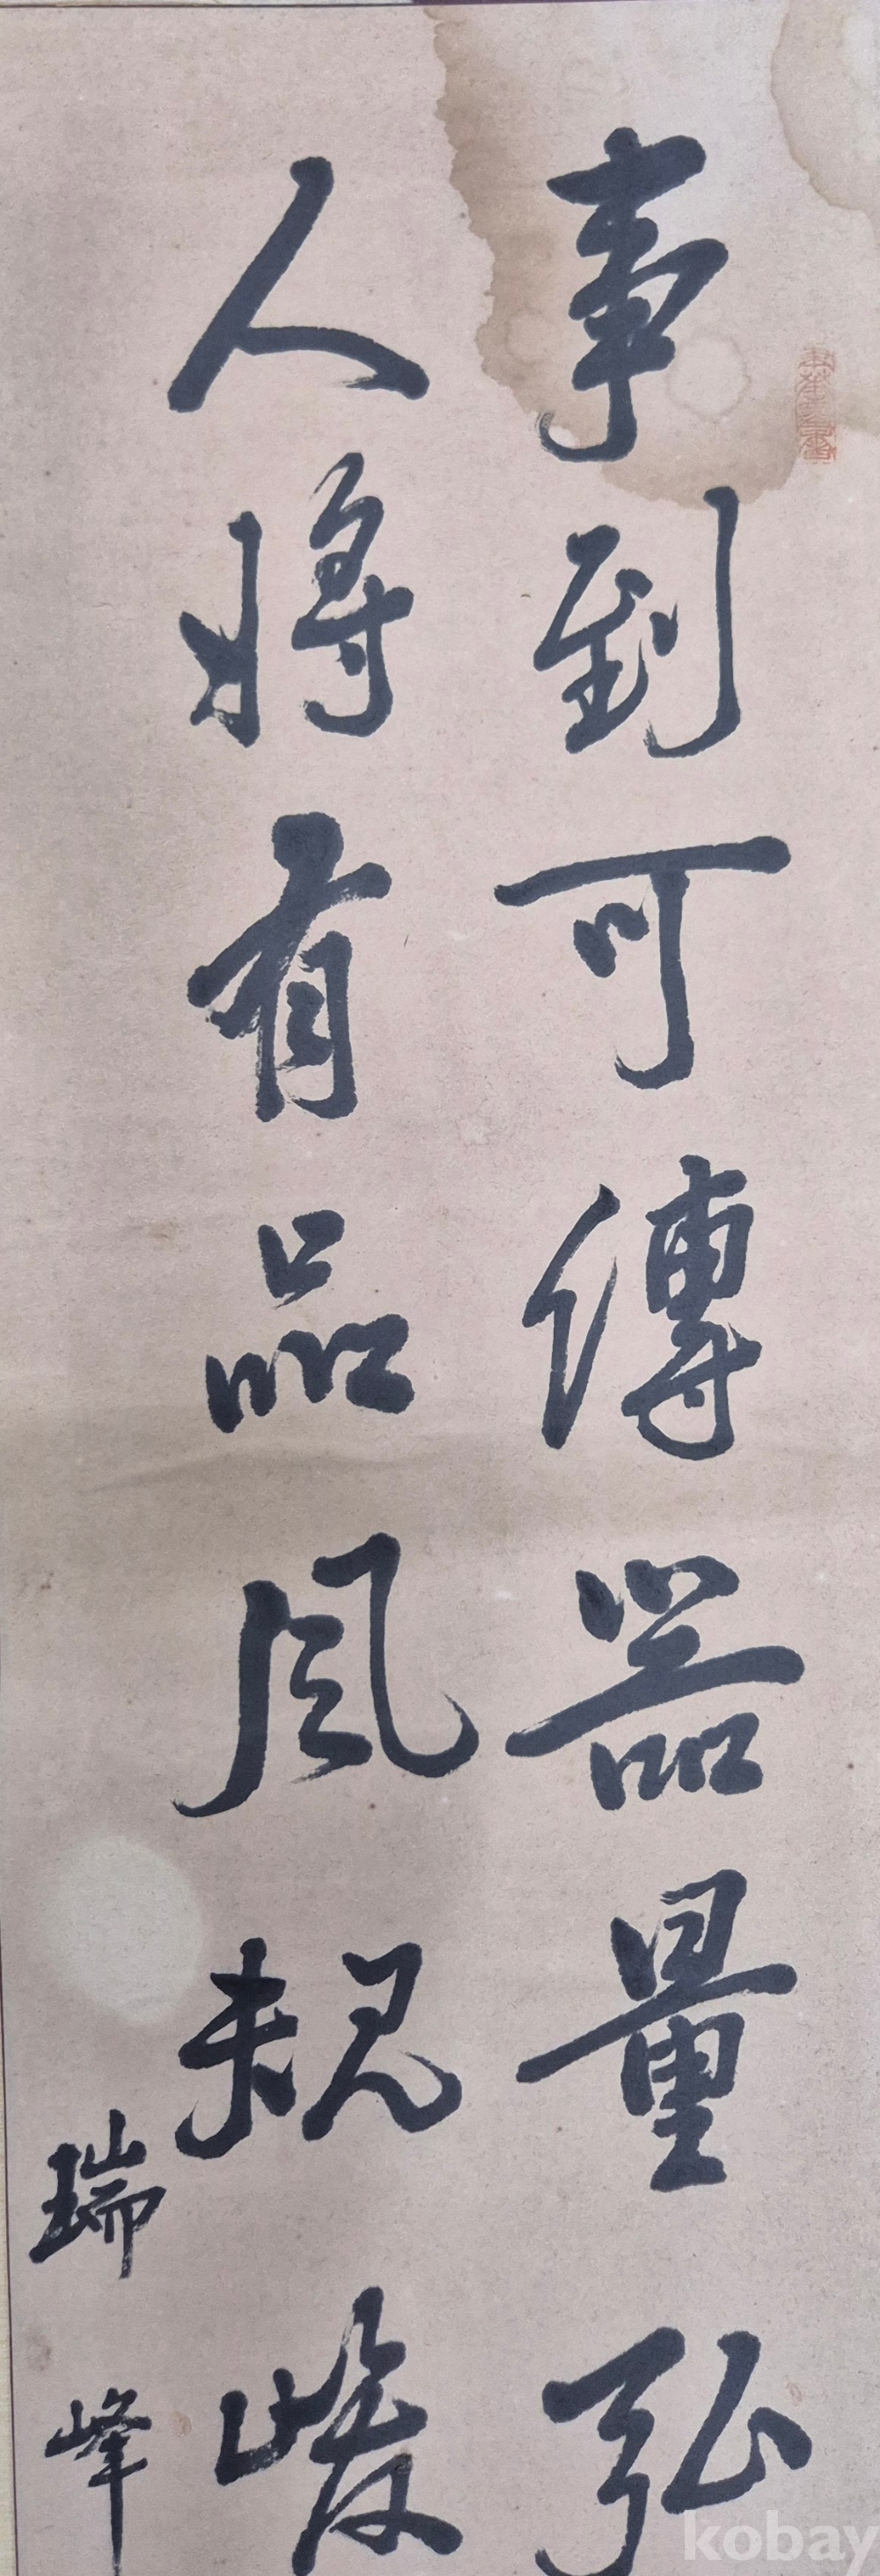 事到可傳器量弘
人將有品風規峻
瑞峰
kobay